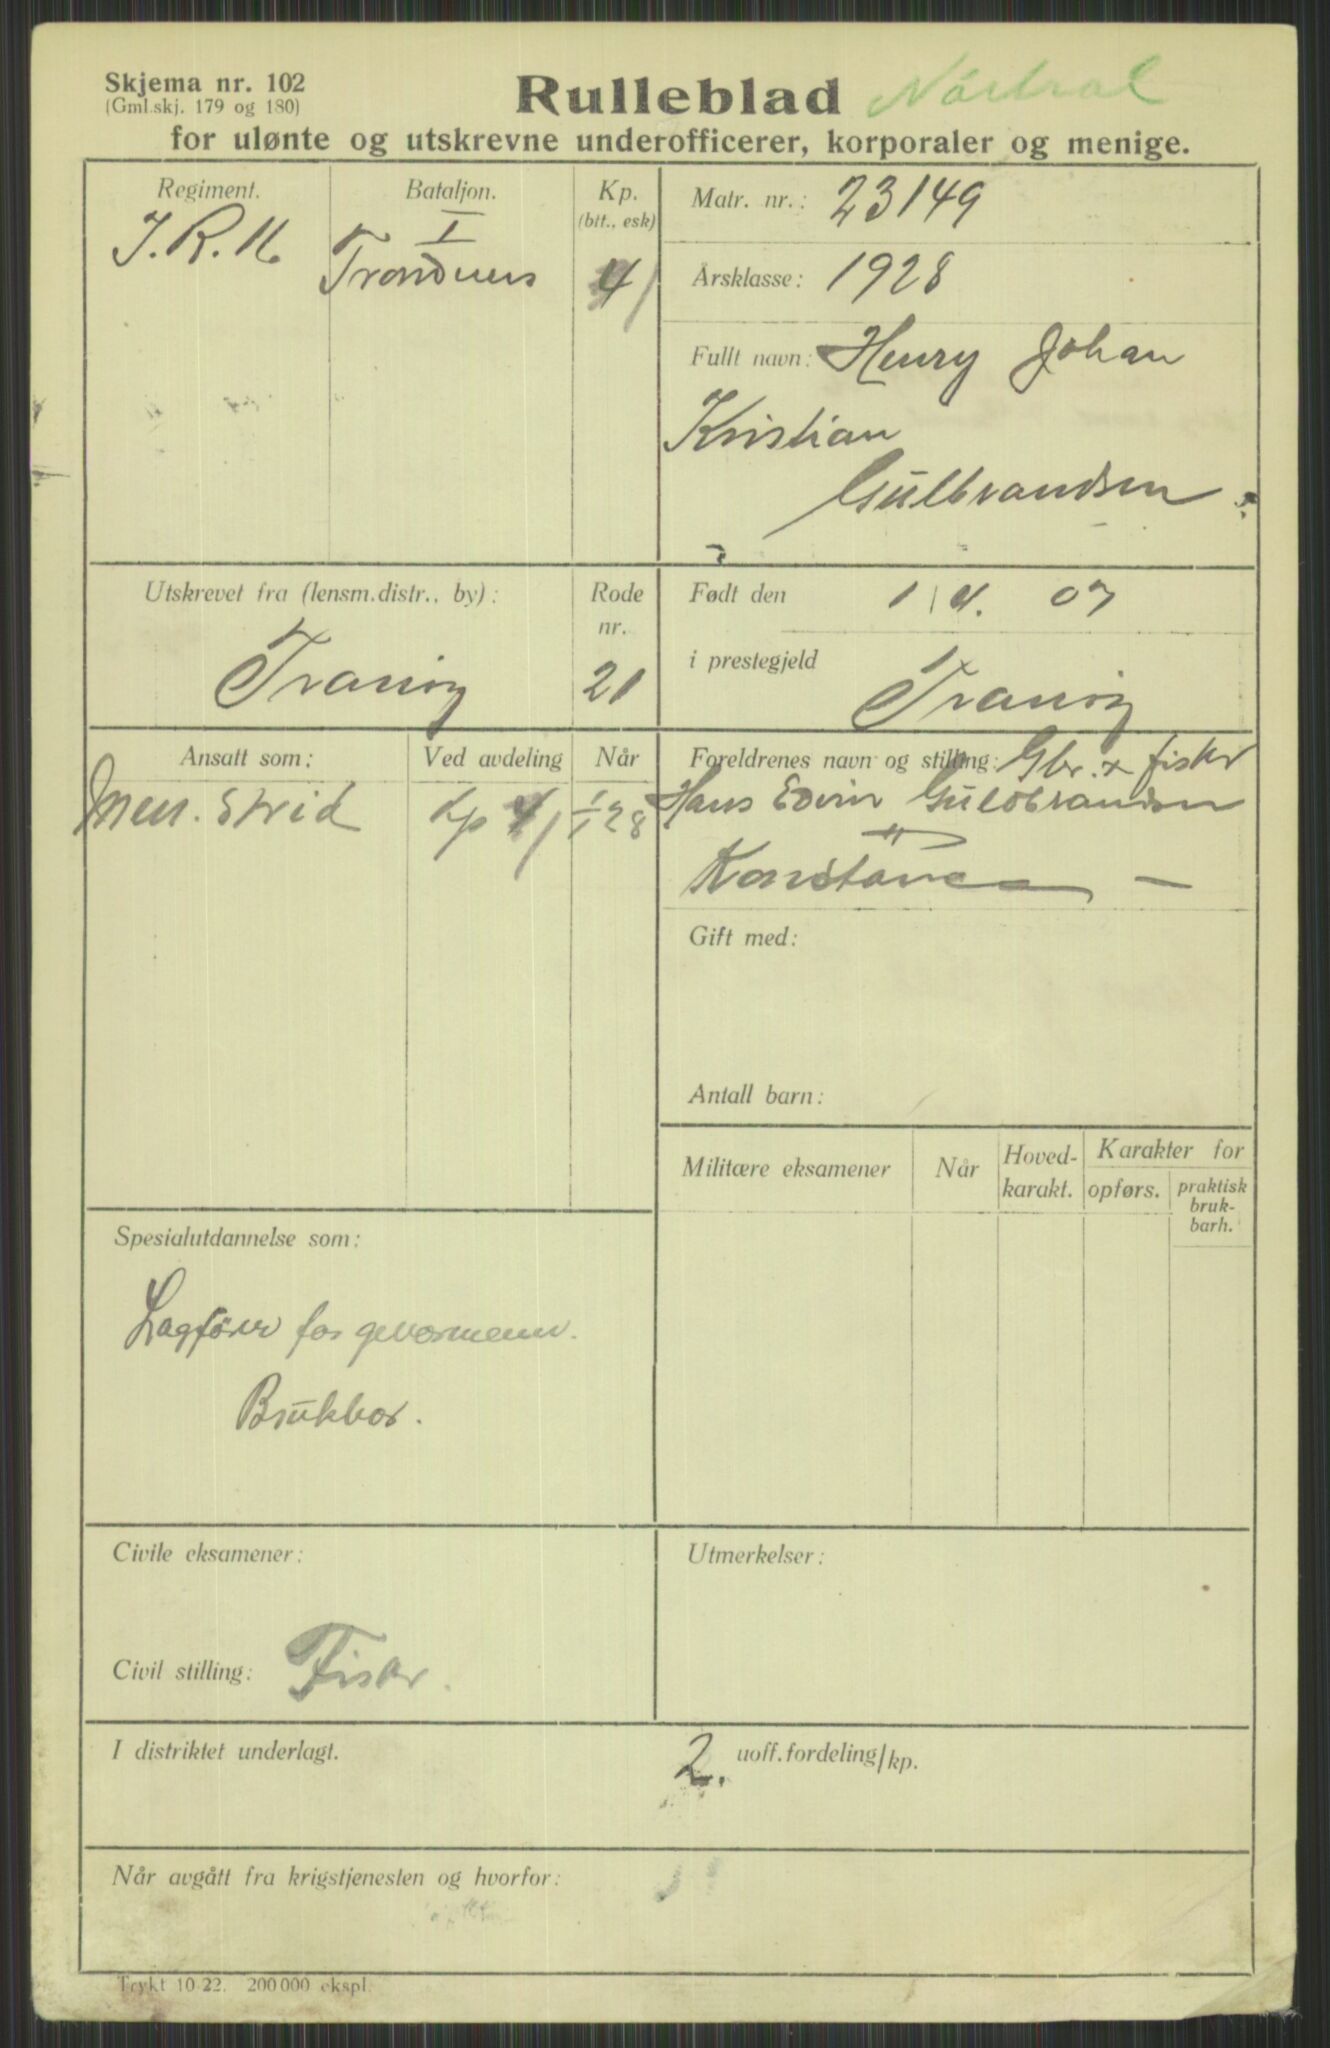 Skjema nr. 102
(Gml.skj. 179 og 180)
Rulleblad
for ulønte og utskrevne underofficerer, korporaler og menige.
Regiment.
J.R. 16
Bataljon.
I
Trondenes
Kp.
(btt., esk)
4
Matr. nr.: 23149
Årsklasse: 1928
Fullt navn: Henry Johan
Kristian
Gulbrandsen
Utskrevet fra (lensm.distr., by):
Tranøy
Rode
nr.
21
Født den 1/4. 07
i prestegjeld
Tranøy
Ansatt som:
Men. Strid
Ved avdeling
Kp 4/
Når
1/1 28
Foreldrenes navn og stilling: Gbr. + fisker
Hans Edvin Guldbrandsen
Konstance —
Gift med:
Antall barn:
Militære eksamener
Når
Hoved-
karakt.
Karakter for
opførs.
praktisk
bruk-
barh.
Spesialutdannelse som:
Lagfører for geværmenn.
Brukbar.
Civile eksamener:
Civil stilling: Fisker.
Utmerkelser:
I distriktet underlagt.
2. uoff. fordeling/kp.
Når avgått fra krigstjenesten og hvorfor:
Trykt 10-22. 200 000 ekspl.